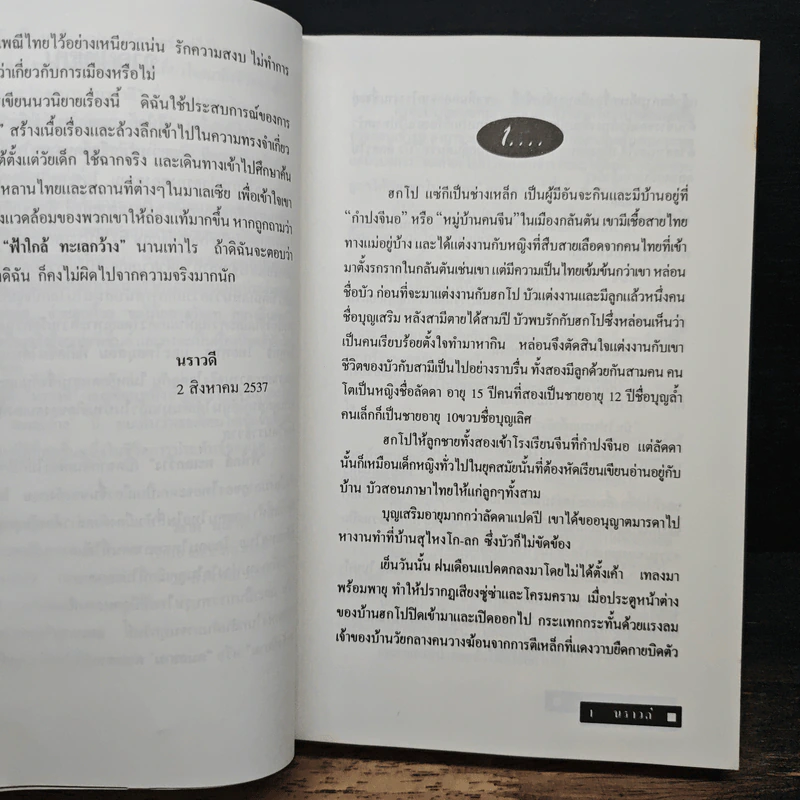 เพณีไทยไว้อย่างเหนียวแน่น รักความสงบ ไม่ทำการ
ว่าเกี่ยวกับการเมืองหรือไม่
เขียนนวนิยายเรื่องนี้ ดิฉันใช้ประสบการณ์ของการ
" สร้างเนื้อเรื่องและล้วงลึกเข้าไปในความทรงจำเกี่ยว
ต้ตั้งแต่วัยเด็ก ใช้ฉากจริง และเดินทางเข้าไปศึกษาค้น
หลานไทยและสถานที่ต่างๆในมาเลเซีย เพื่อเข้าใจเขา
งแวดล้อมของพวกเขาให้ถ่องแท้มากขึ้น หากถูกถามว่า
"ฟ้าใกล้ ทะเลกว้าง" นานเท่าไร ถ้าดิฉันจะตอบว่า
าดิฉัน ก็คงไม่ผิดไปจากความจริงมากนัก
นราวดี
2 สิงหาคม 2537
1....
ฮกโป แซ่กีเป็นช่างเหล็ก เป็นผู้มีอันจะกินและมีบ้านอยู่ที่
"กำปงจีนอ" หรือ "หมู่บ้านคนจีน"ในเมืองกลันตัน เขามีเชื้อสายไทย
ทางแม่อยู่บ้าง และได้แต่งงานกับหญิงที่สืบสายเลือดจากคนไทยที่เข้า
มาตั้งรกรากในกลันตันเช่นเขา แต่มีความเป็นไทยเข้มข้นกว่าเขา หล่อน
ชื่อบัว ก่อนที่จะมาแต่งงานกับฮกโป บัวแต่งงานและมีลูกแล้วหนึ่งคน
ชื่อบุญเสริม หลังสามีตายได้สามปี บัวพบรักกับฮกโปซึ่งหล่อนเห็นว่า
เป็นคนเรียบร้อยตั้งใจทำมาหากิน หล่อนจึงตัดสินใจแต่งงานกับเขา
ชีวิตของบัวกับสามีเป็นไปอย่างราบรื่น ทั้งสองมีลูกด้วยกันสามคน คน
โตเป็นหญิงชื่อลัดดา อายุ 15 ปีคนที่สองเป็นชายอายุ 12 ปีชื่อบุญล้ำ
คนเล็กก็เป็นชายอายุ 10ขวบชื่อบุญเลิศ
ฮกโปให้ลูกชายทั้งสองเข้าโรงเรียนจีนที่กำปงจีนอ แต่ลัดดา
นั้นก็เหมือนเด็กหญิงทั่วไปในยุคสมัยนั้นที่ต้องหัดเรียนเขียนอ่านอยู่กับ
บ้าน บัวสอนภาษาไทยให้แก่ลูกๆทั้งสาม
บุญเสริมอายุมากกว่าลัดดาแปดปี เขาได้ขออนุญาตมารดาไป
หางานทำที่บ้านสุไหงโก-ลก ซึ่งบัวก็ไม่ขัดข้อง
เย็นวันนั้น ฝนเดือนแปดตกลงมาโดยไม่ได้ตั้งเค้า เทลงมา
พร้อมพายุ ทำให้ปรากฏเสียงซู่ซ่าและโครมคราม เมื่อประตูหน้าต่าง
ของบ้านฮกโปปิดเข้ามาและเปิดออกไป กระแทกกระทั้นด้วยแรงลม
เจ้าของบ้านวัยกลางคนวางฆ้อนจากการตีเหล็กที่แดงวาบยืดกายบิดตัว
1 นราวดี